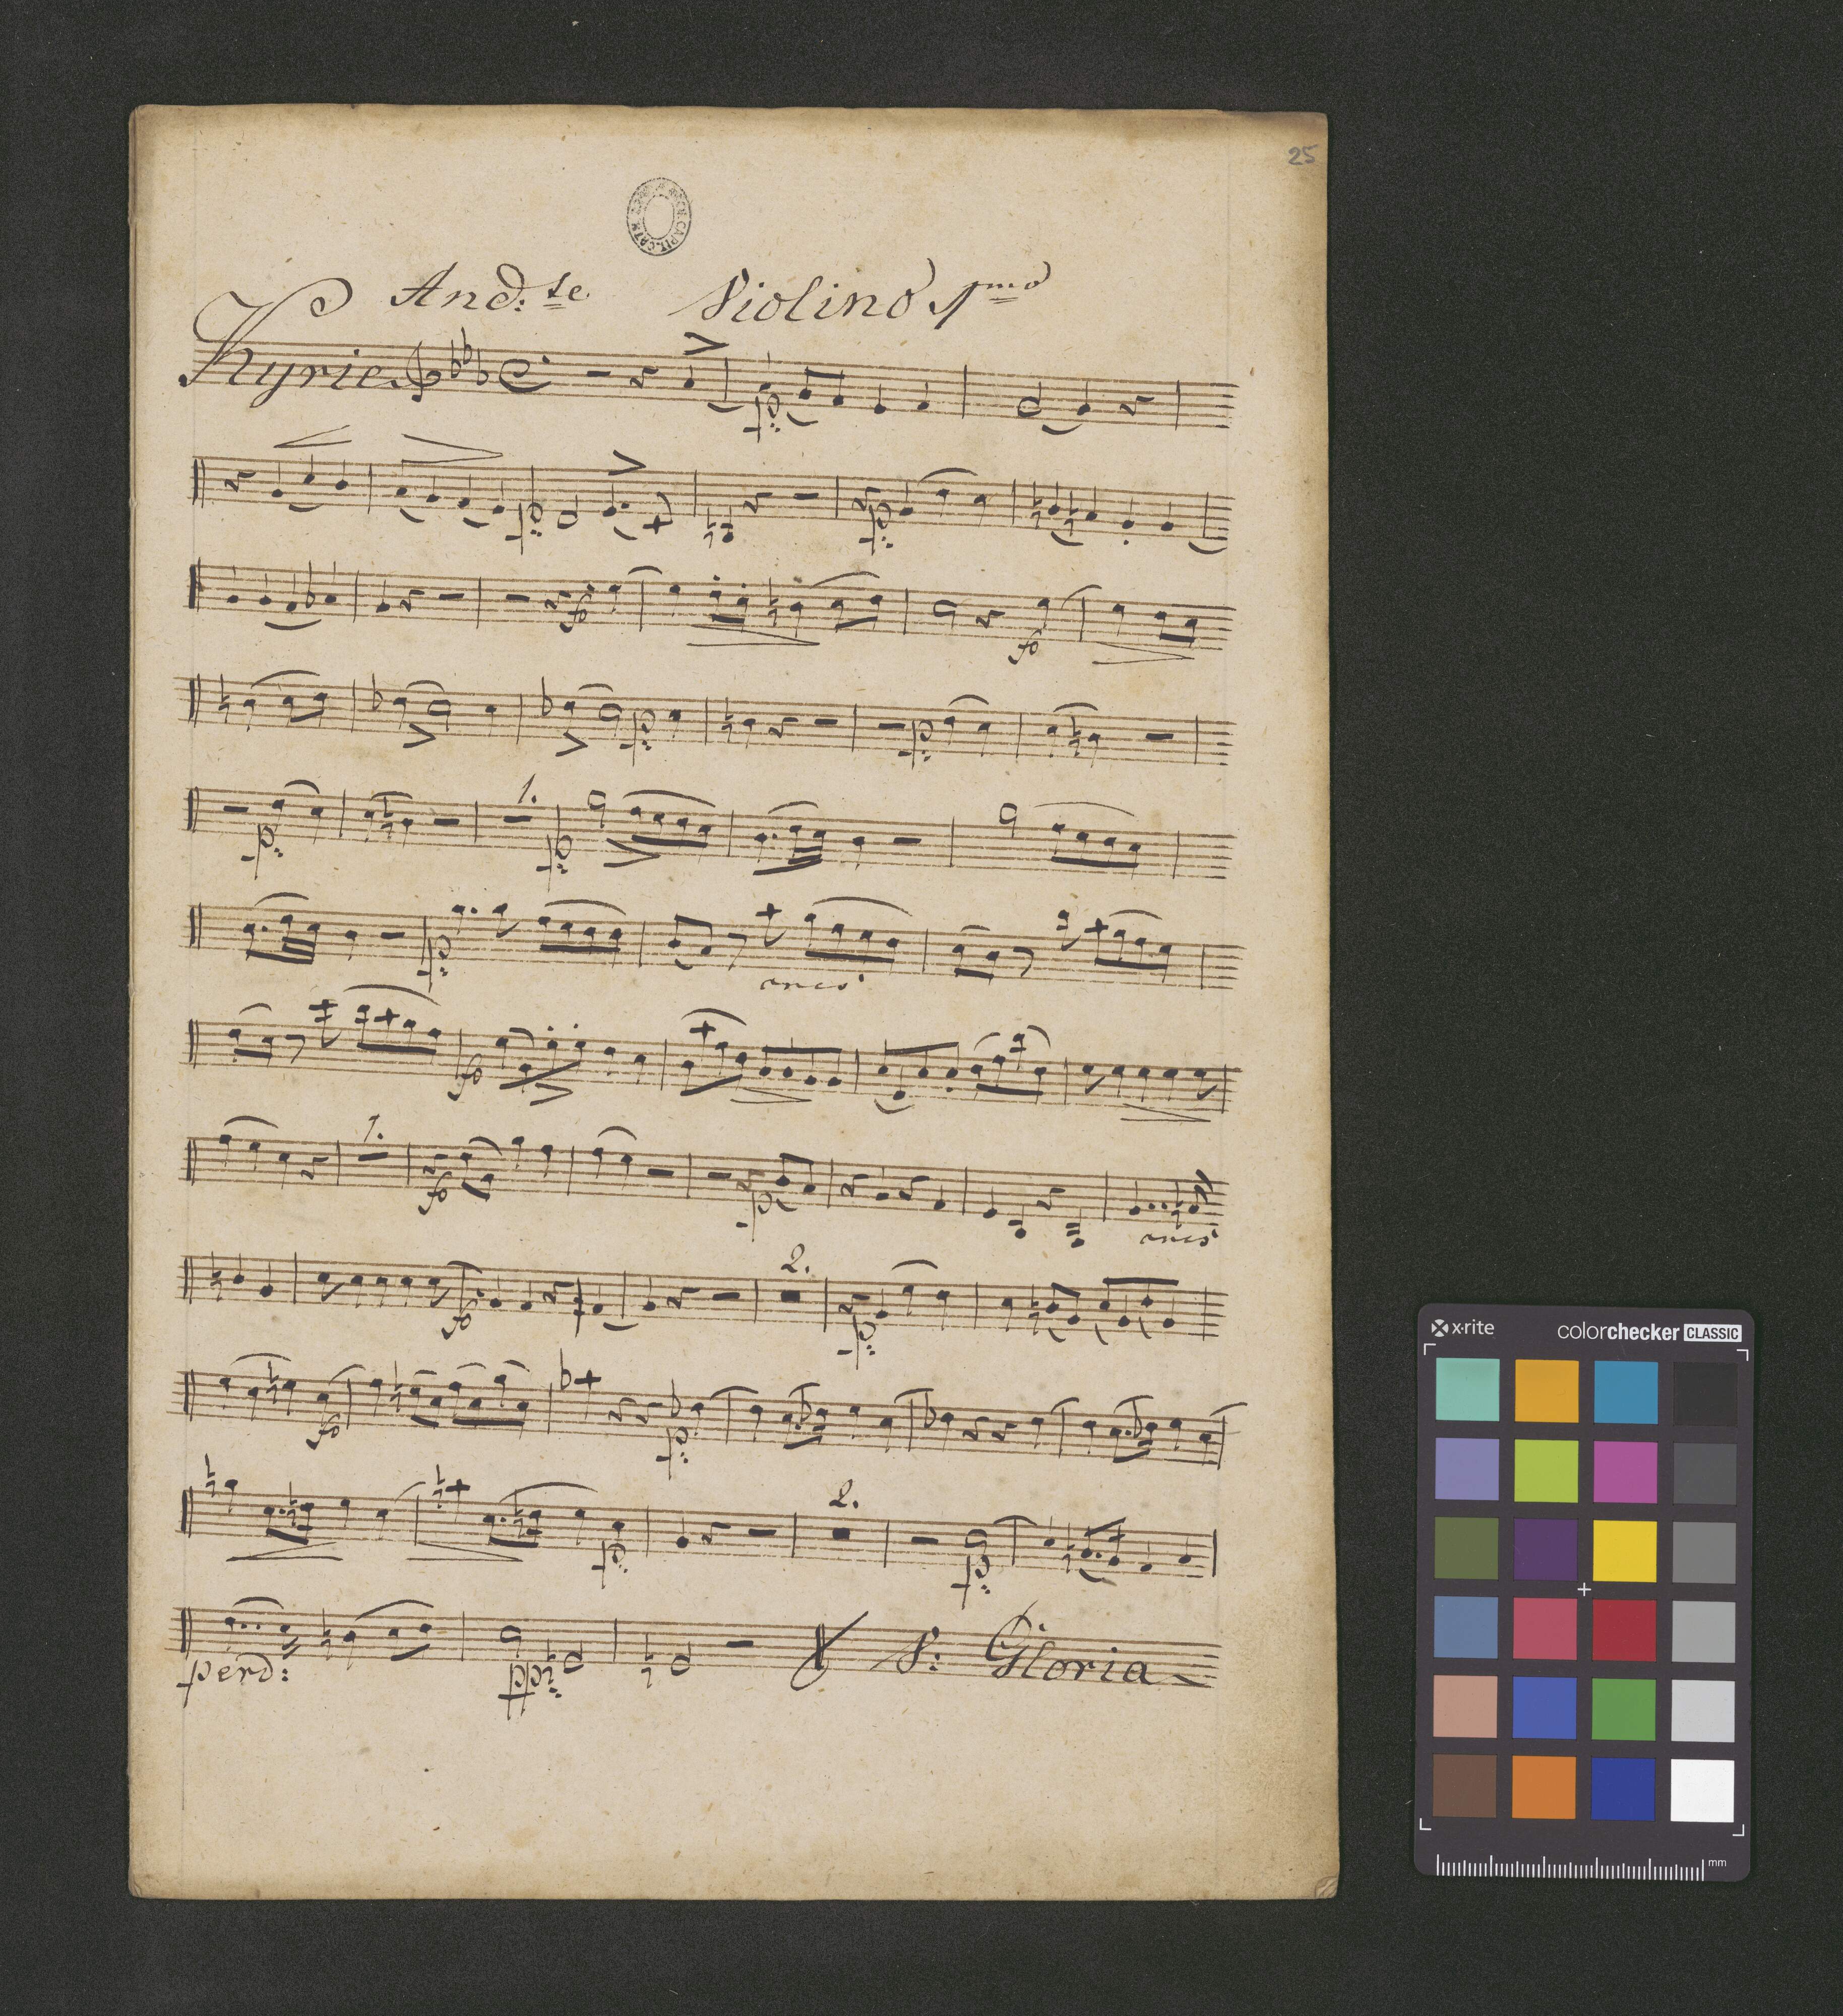 25
And:te Violino Pmo
Kyrie
p:
p: p:
fo fo
p: p:
1.
p: p:
p:
cres
fo
1.
fo p:
cres
2.
fo p:
fo p:
2.
p: p:
perd: pp: V: Gloria
x·rite colorchecker CLASSIC
mm